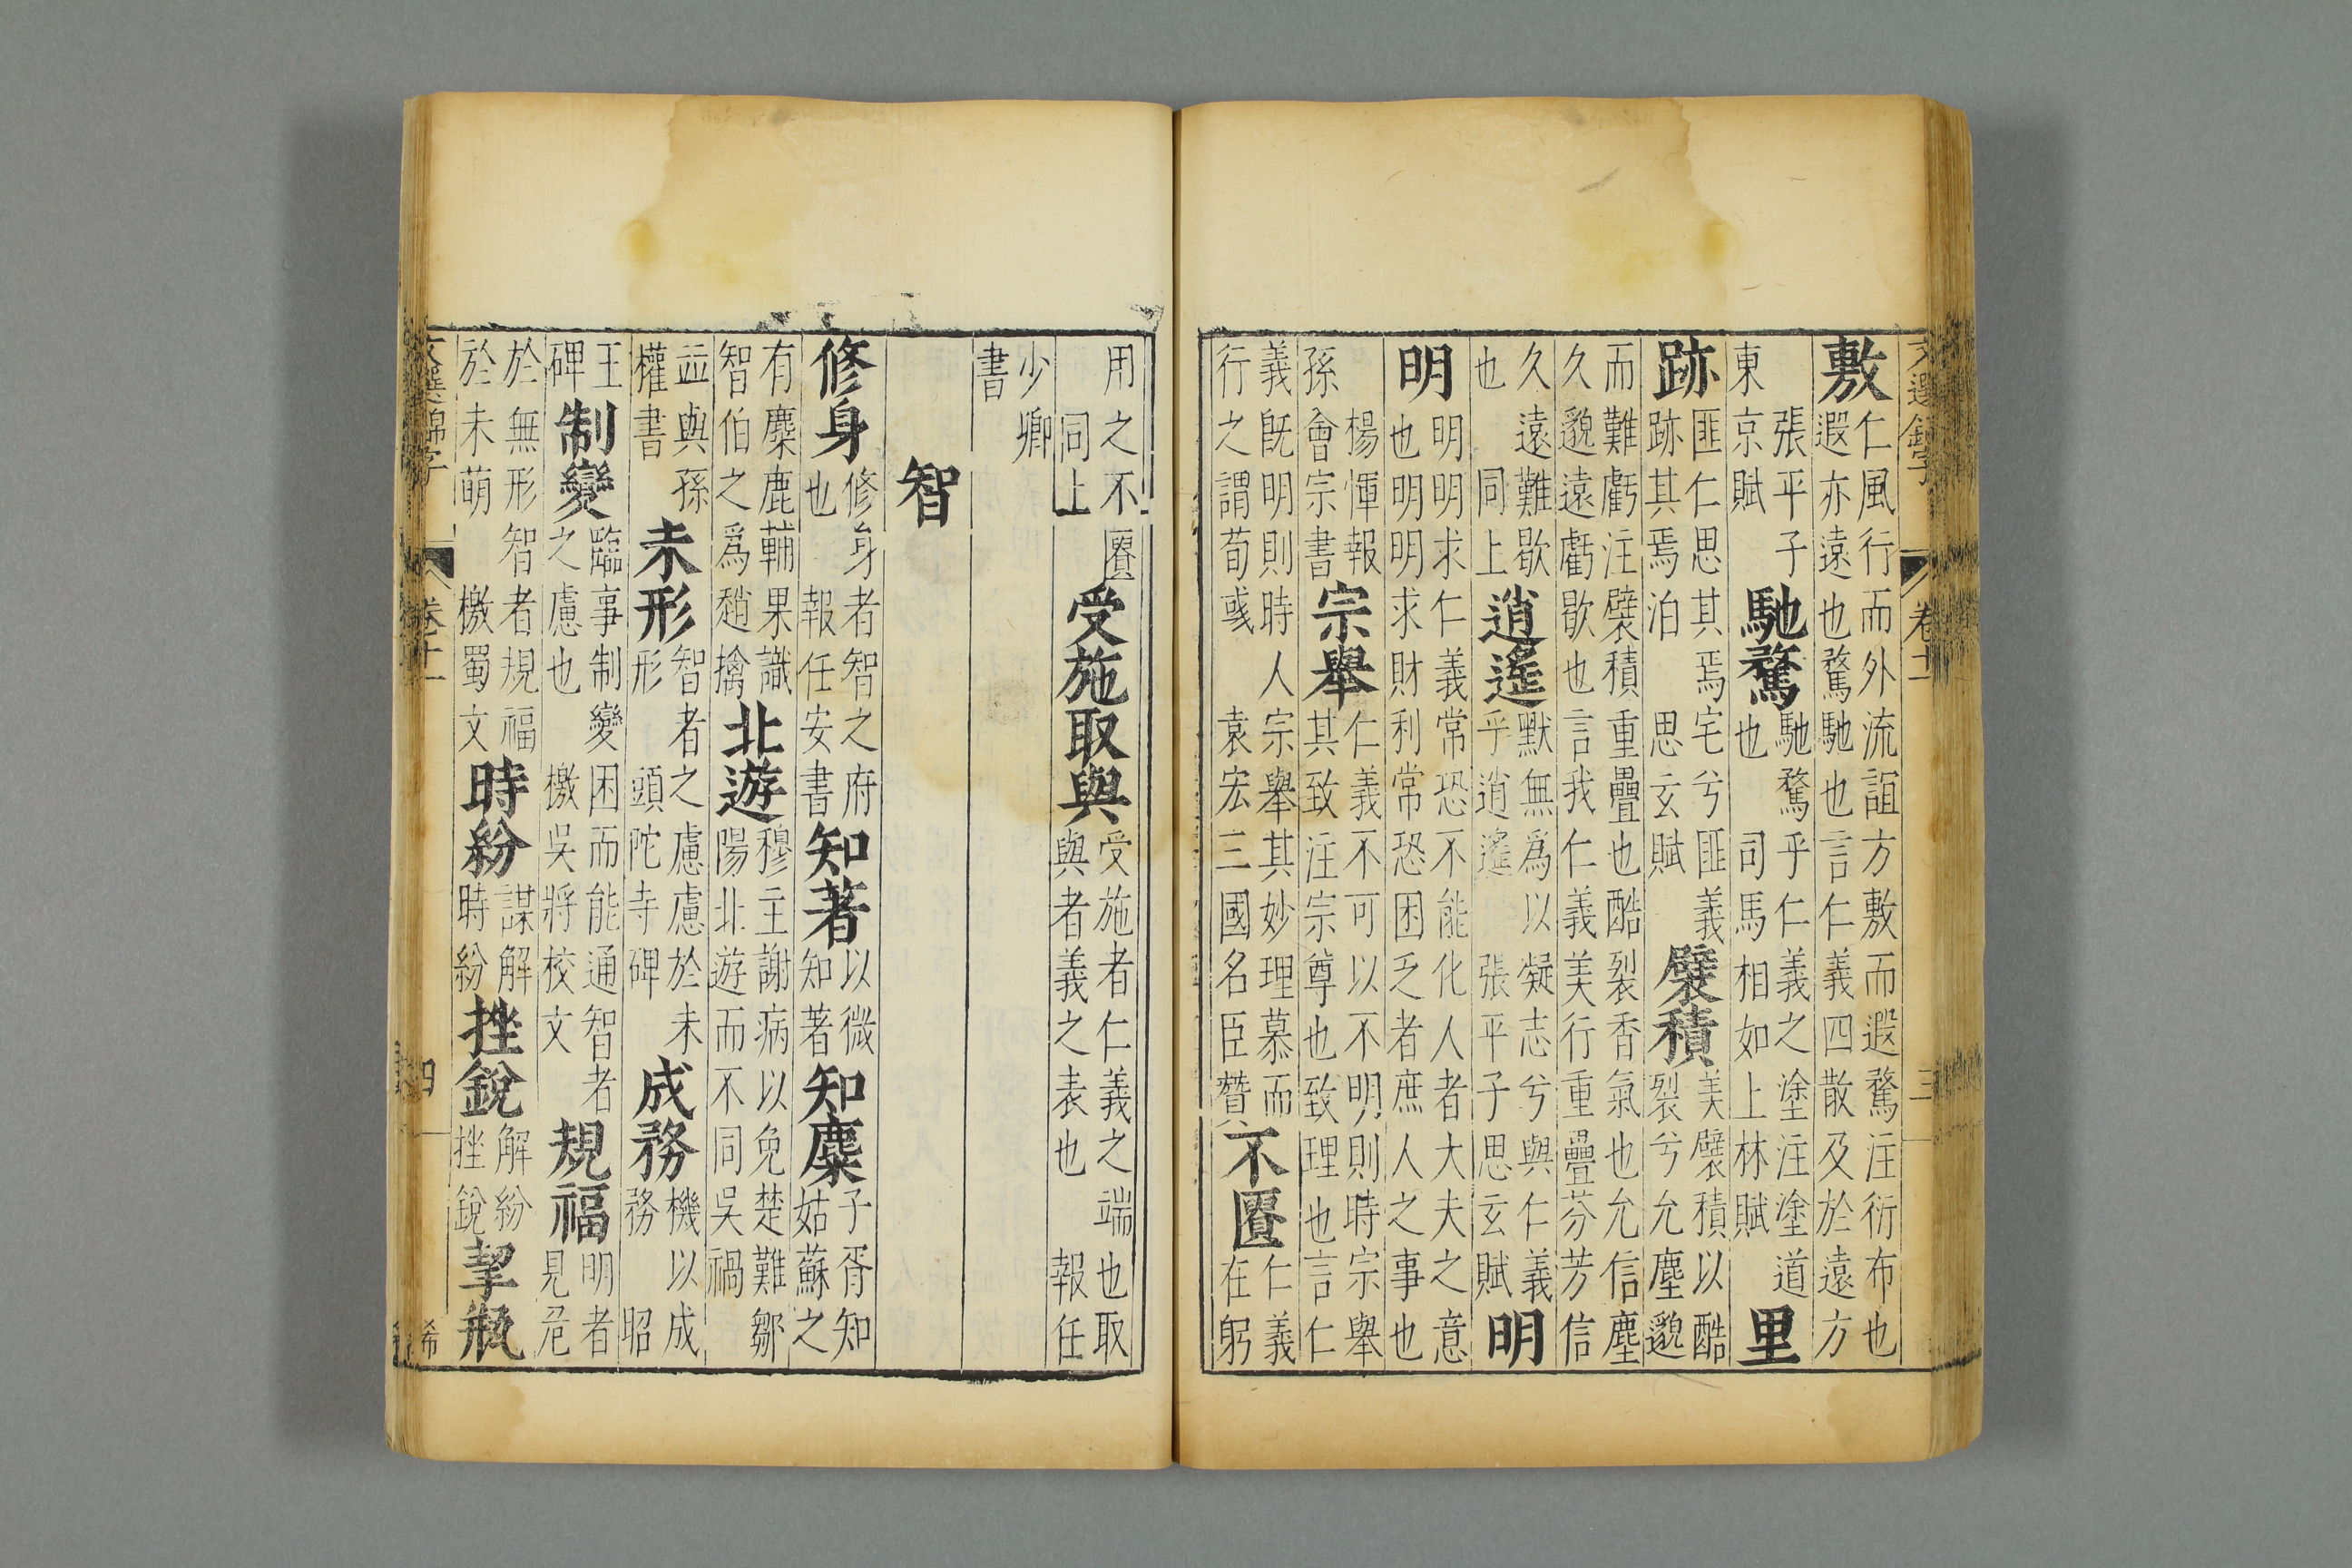 文選錦字 卷十一 三
敷
仁風行而外流誼方敷而遐騖注衍布也
遐亦遠也騖馳也言仁義四散及於遠方
張平子
東京賦
馳騖
馳騖乎仁義之塗注塗道
也 司馬相如上林賦
里
跡
匪仁思其焉宅兮匪義
跡其焉泊 思玄賦
襞積
美襞積以酷
裂兮允塵邈
而難虧注襞積重疊也酷裂香氣也允信塵
久邈遠虧歇也言我仁義美行重疊芬芳信
久遠難歇
也 同上
逍遙
默無爲以凝志兮與仁義
乎逍遙 張平子思玄賦
明
明
明明求仁義常恐不能化人者大夫之意
也明明求財利常恐困乏者庶人之事也
楊惲報
孫會宗書
宗舉
仁義不可以不明則時宗舉
其致注宗尊也致理也言仁
義旣明則時人宗舉其妙理慕而
行之謂荀彧 袁宏三國名臣贊
不匱
仁義
在躬
用之不匱
同上
受施取與
受施者仁義之端也取
與者義之表也 報任
少卿
書
智
修身
修身者智之府
也 報任安書
知著
以微
知著
知麋
子胥知
姑蘇之
有麋鹿輔果識
智伯之爲趙擒
北遊
穆主謝病以免楚難鄒
陽北遊而不同吳禍
並與孫
權書
未形
智者之慮慮於未
形 頭陀寺碑
成務
機以成
務 昭
王
碑
制變
臨事制變困而能通智者
之慮也 檄吳將校文
規福
明者
見危
於無形智者規福
於未萌 檄蜀文
時紛
謀解
時紛
挫銳
解紛
挫銳
挈瓶
文選錦字 卷十一 四 希